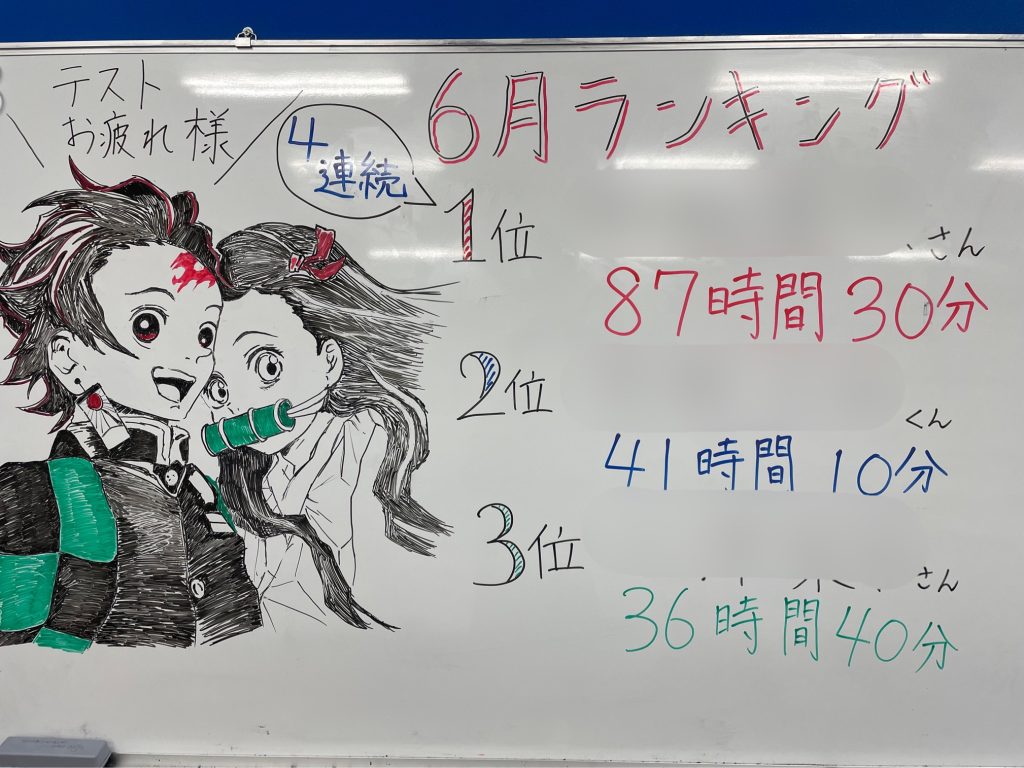 テスト
お疲れ様
4
連続
6月ランキング
1位
さん
87時間30分
2位
くん
41時間10分
3位
さん
36時間40分